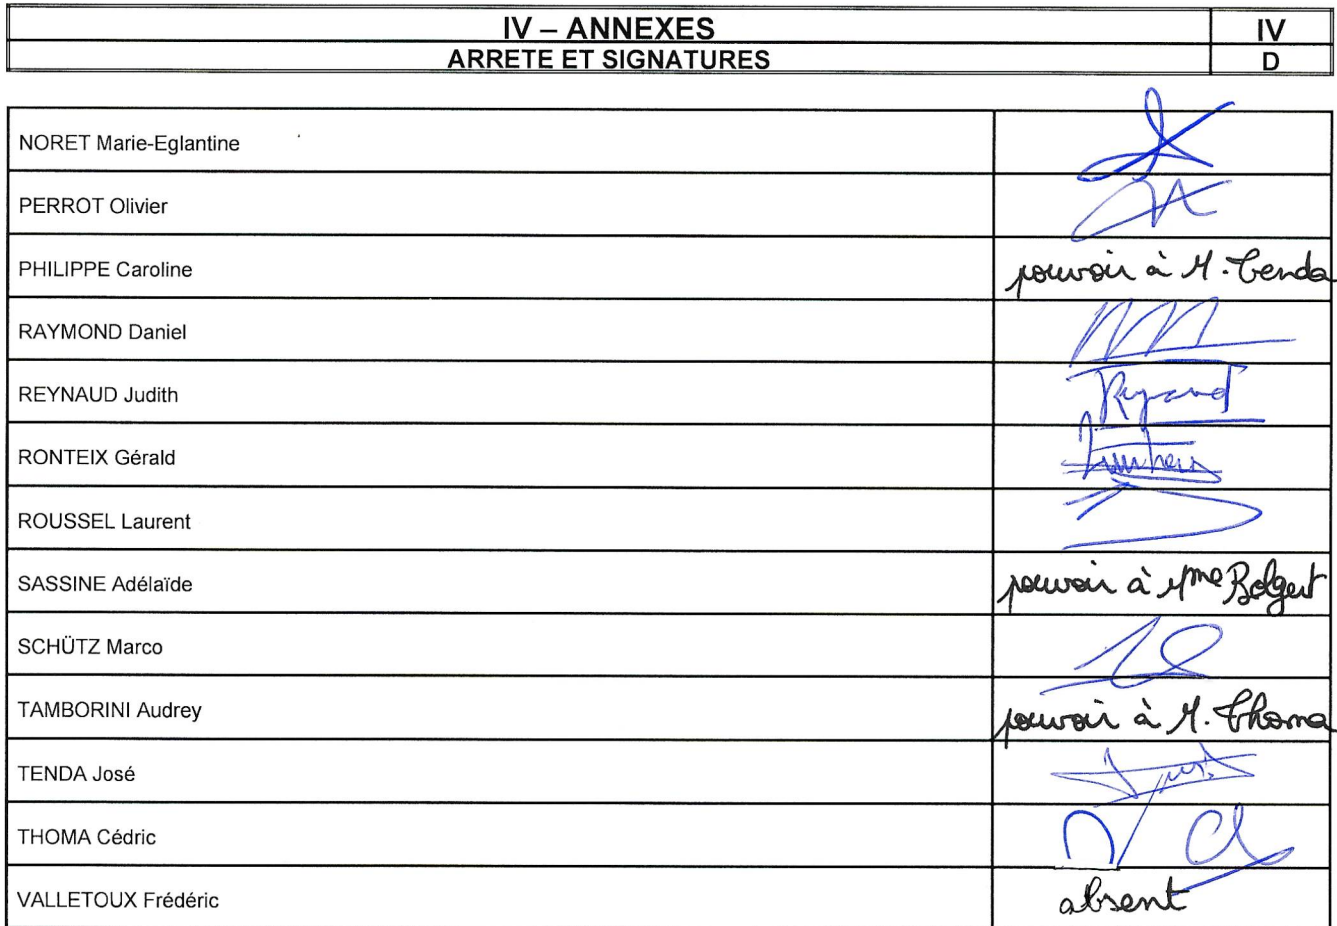 IV – ANNEXES IV
ARRETE ET SIGNATURES D
NORET Marie-Eglantine
PERROT Olivier
PHILIPPE Caroline pouvoir à M. Tenda
RAYMOND Daniel
REYNAUD Judith Reynaud
RONTEIX Gérald
ROUSSEL Laurent
SASSINE Adélaïde pouvoir à Mme Bolgert
SCHÜTZ Marco
TAMBORINI Audrey pouvoir à M. Thoma
TENDA José
THOMA Cédric
VALLETOUX Frédéric absent